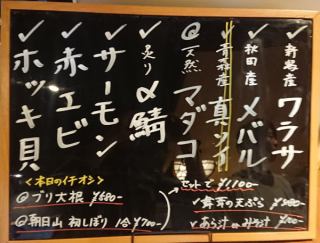 ✓新潟産 ワラサ
✓秋田産 メバル
✓青森産 真ソイ
◎天然 マダコ
✓炙り 〆鯖
✓サーモン
✓赤エビ
✓ホッキ貝
<本日のイチオシ>
◎ブリ大根 ¥680-
◎朝日山 初しぼり 1合 ¥700-
セットで ¥1100-
✓舞茸の天ぷら
✓あら汁 みそ汁